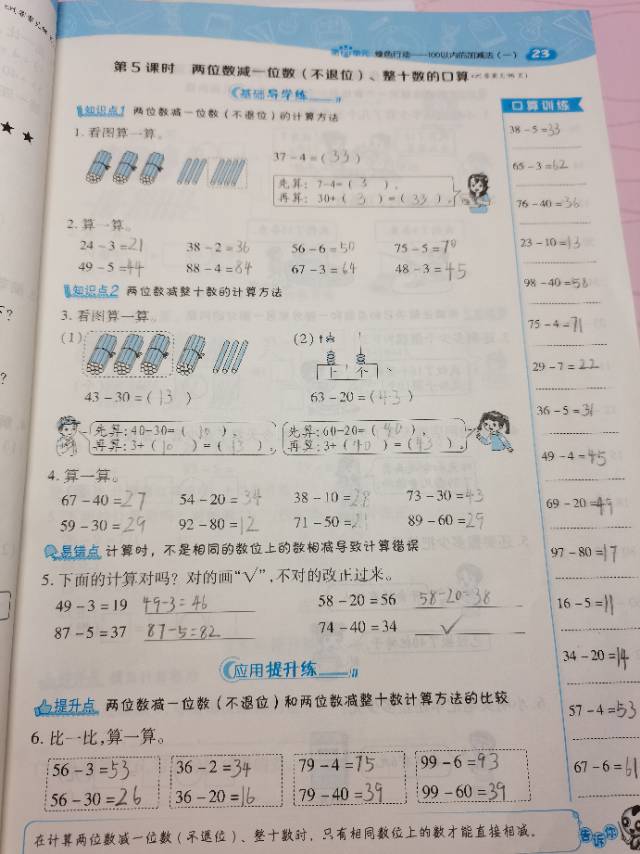 绿色行动——100以内的加减法(一) 23
第5课时 两位数减一位数(不退位)、整十数的口算
基础导学练
知识点1 两位数减一位数(不退位)的计算方法
1. 看图算一算。
37-4=(33)
先算:7-4=(3),
再算:30+(3)=(33)。
2. 算一算。
24-3=21 38-2=36 56-6=50 75-5=70
49-5=44 88-4=84 67-3=64 48-3=45
知识点2 两位数减整十数的计算方法
3. 看图算一算。
(1) (2)
十 个
43-30=(13) 63-20=(43)
先算:40-30=(10), 先算:60-20=(40),
再算:3+(10)=(13)。 再算:3+(40)=(43)。
4. 算一算。
67-40=27 54-20=34 38-10=28 73-30=43
59-30=29 92-80=12 71-50=21 89-60=29
易错点 计算时,不是相同的数位上的数相减导致计算错误
5. 下面的计算对吗?对的画“√”,不对的改正过来。
49-3=19 49-3=46 58-20=56 58-20=38
87-5=37 87-5=82 74-40=34 √
应用提升练
提升点 两位数减一位数(不退位)和两位数减整十数计算方法的比较
6. 比一比,算一算。
56-3=53 36-2=34 79-4=75 99-6=93
56-30=26 36-20=16 79-40=39 99-60=39
在计算两位数减一位数(不退位)、整十数时,只有相同数位上的数才能直接相减。
告诉你
口算训练
38-5=33
65-3=62
76-40=36
23-10=13
98-40=58
75-4=71
29-7=22
36-5=31
49-4=45
69-20=49
97-80=17
16-5=11
34-20=14
57-4=53
67-6=61